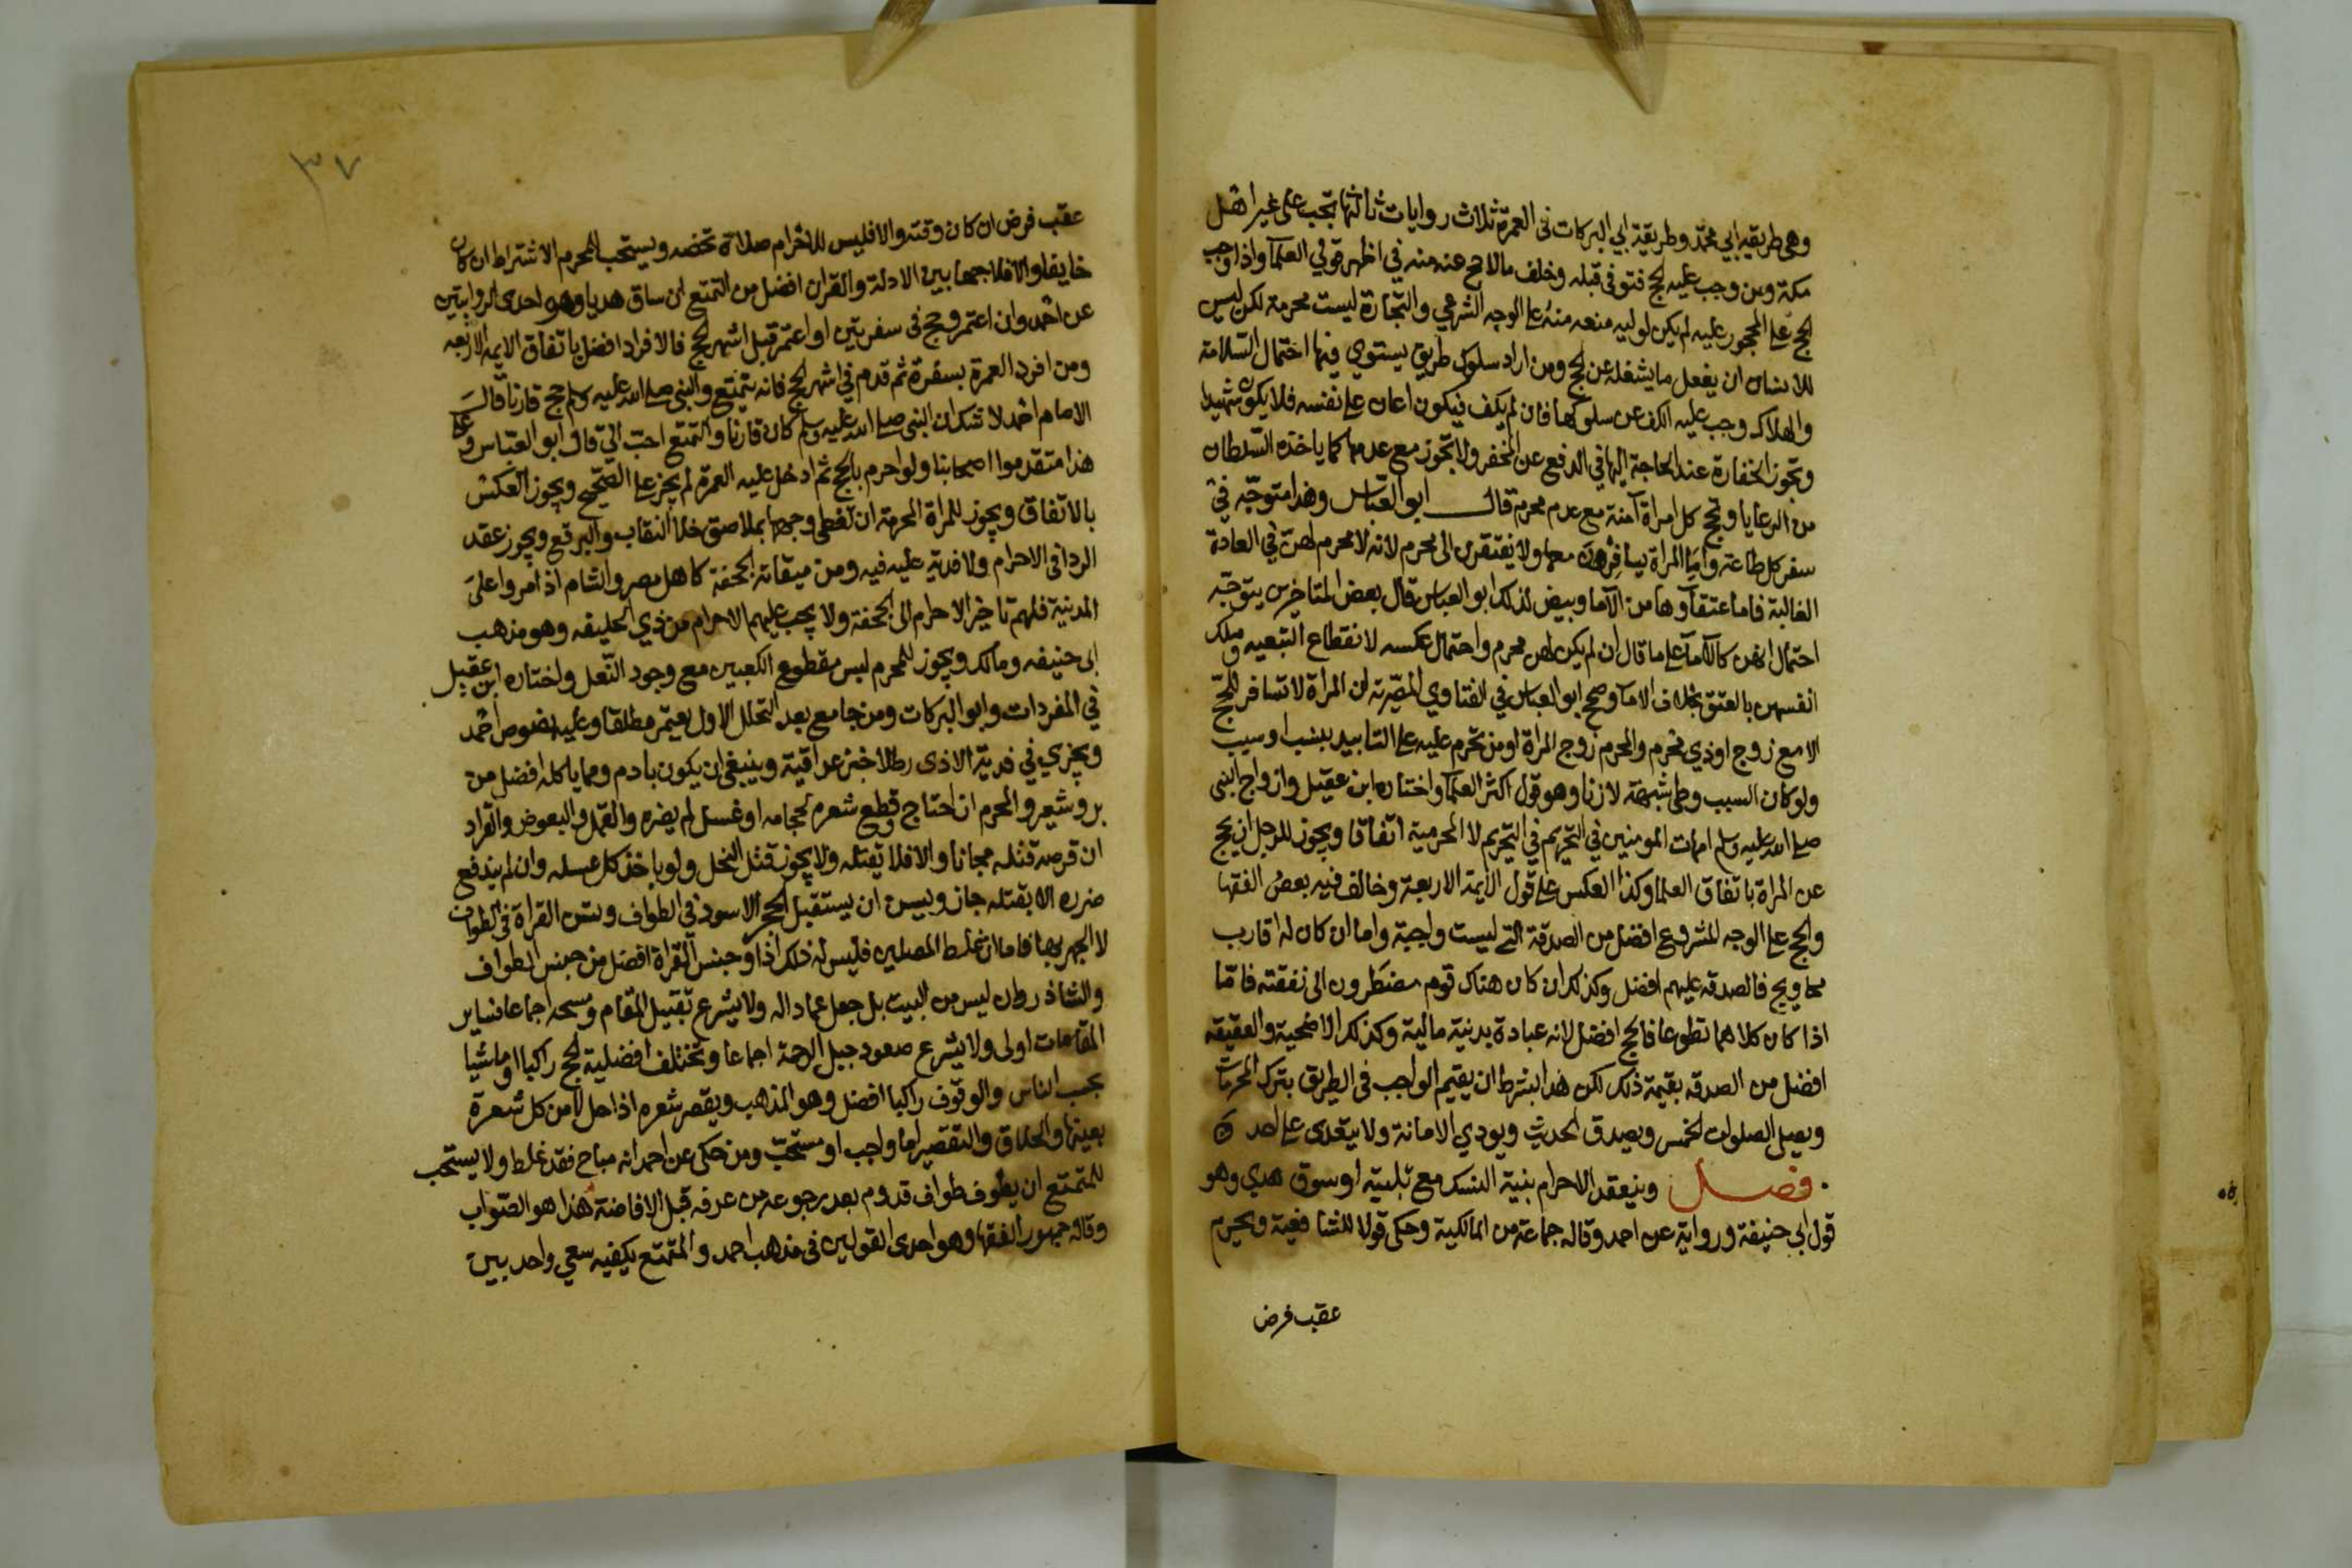 وهي طريقه ابي محمد وطريقة ابي البركات في العمرة ثلاث روايات ثالثها تجب على غير اهل
مكة ومن وجب عليه الحج فتوفي قبله وخلف مالا حج عنه منه في اظهر قولي العلمآ واذا وجب
الحج على المحجور عليه لم يكن لوليه منعه منه على الوجه الشرعي والتجارة ليست محرمة لكن ليس
للانسان ان يفعل ما يشغله عن الحج ومن اراد سلوك طريق يستوي فيها احتمال السلامة
والهلاك وجب عليه الكف عن سلوكها فان لم يكف فيكون اعان على نفسه فلا يكون شهيدا
وتجوز الخفارة عند الحاجة اليها في الدفع عن المخفر ولا تجوز مع عدمها كما ياخذه السلطان
من الرعايا وتحج كل امراة آمنة مع عدم محرم قال ابو العباس وهذا متوجه في
سفر كل طاعة واما المراة يسافرن معها ولا يفتقرن الى محرم لانه لا محرم لهن في العادة
الغالبة فاما عتقآوها من الآما وبيض لذلك ابو العباس قال بعض المتاخرين يتوجه
احتمال انهن كالآمآ على ما قال ان لم يكن لهن محرم واحتمال عكسه لانقطاع التبعيه وملك
انفسهن بالعتق بخلاف الامآ وصحح ابو العباس في الفتاوي المصرية ان المراة لا تسافر للحج
الا مع زوج اوذي محرم والمحرم زوج المراة او من تحرم عليه على التابيد بنسب او سبب
ولو كان السبب وطى شبهة لا زنا وهو قول اكثر العلمآ واختاره ابن عقيل وازواج النبي
صلى الله عليه وسلم امهات المومنين في التحريم في التحريم لا المحرمية اتفاقا ويجوز للرجل ان يحج
عن المراة باتفاق العلما وكذا العكس على قول الايمة الاربعة وخالف فيه بعض الفقها
والحج على الوجه المشروع افضل من الصدقة التي ليست واجبة واما ان كان له اقارب
محاويج فالصدقه عليهم افضل وكذلك ان كان هناك قوم مضطرون الى نفقته فامّا
اذا كان كلاهما تطوعا فالحج افضل لانه عبادة بدنية مالية وكذلك الاضحية والعقيقه
افضل من الصدقه بقيمة ذلك لكن هذا بشرط ان يقيم الواجب في الطريق بترك المحرمات
ويصلي الصلوات الخمس ويصدق الحديث ويودي الامانة ولا يتعدى على احد
فصل وينعقد الاحرام بنية النسك مع تلبية او سوق هدي وهو
قول ابي حنيفة ورواية عن احمد وقاله جماعة من المالكية وحكى قولا للشافعية ويحرم
عقب فرض
٣٧
عقب فرض ان كان وقته والا فليس للاحرام صلاة تخصه ويستحب للمحرم الاشتراط ان كان
خايفا والا فلا جمعا بين الادلة والقران افضل من التمتع ان ساق هديا وهو احدى الروايتين
عن احمد وان اعتمر وحج في سفرتين او اعتمر قبل اشهر الحج فالافراد افضل باتفاق الايمة الاربعه
ومن افرد العمرة بسفرة ثم قدم في اشهر الحج فانه يتمتع والنبي صلى الله عليه وسلم حج قارنا قال
الامام احمد لا شك ان النبي صلى الله عليه وسلم كان قارنا والتمتع احب الي قال ابو العباس وعلى
هذا متقدموا اصحابنا ولو احرم بالحج ثم ادخل عليه العمرة لم يجز على الصحيح ويجوز العكس
بالاتفاق ويجوز للمراة المحرمة ان تغطي وجهها بملاصق خلا النقاب والبرقع ويجوز عقد
الردا في الاحرام ولا فدية عليه فيه ومن ميقاته الجحفة كاهل مصر والشام اذا مروا على
المدنية فلهم تاخير الاحرام الى الجحفة ولا يجب عليهم الاحرام من ذي الحليفه وهو مذهب
ابى حنيفه ومالك ويجوز للمحرم لبس مقطوع الكعبين مع وجود النعل واختاره ابن عقيل
في المفردات وابو البركات ومن جامع بعد التحلل الاول يعتمر مطلقا وعليه نصوص احمد
ويجزي في فدية الاذى رطلا خبز عراقية وينبغي ان يكون بادم ومما ياكله افضل من
بر وشعير والمحرم ان احتاج وقطع شعره لحجامه او غسل لم يضره والقمل والبعوض والقراد
ان قرصه قتله مجانا والا فلا يقتله ولا يجوز قتل النحل ولو باخذ كل عسله وان لم يندفع
ضرره الا بقتله جاز ويسن ان يستقبل الحجر الاسود في الطواف وتسن القراة في الطواف
لا الجهر بها فاما ان غلط المصلين فليس له ذلك اذا وجنس القراة افضل من جنس الطواف
والشاذروان ليس من البيت بل جعل عمادا له ولا يشرع تقبيل المقام ومسحه اجماعا فساير
المقامات اولى ولا يشرع صعود جبل الرحمة اجماعا وتختلف افضلية الحج راكبا او ماشيا
بحسب الناس والوقوف راكبا افضل وهو المذهب ويقصر شعره اذا حل لا من كل شعرة
بعينها والحلاق والتقصير اما واجب او مستحب ومن حكى عن احمد انه مباح فقد غلط ولا يستحب
للمتمتع ان يطوف طواف قدوم بعد رجوعه من عرفه قبل الافاضة هذا هو الصواب
وقاله جمهور الفقها وهو احدى القولين في مذهب احمد والمتمتع يكفيه سعي واحد بين